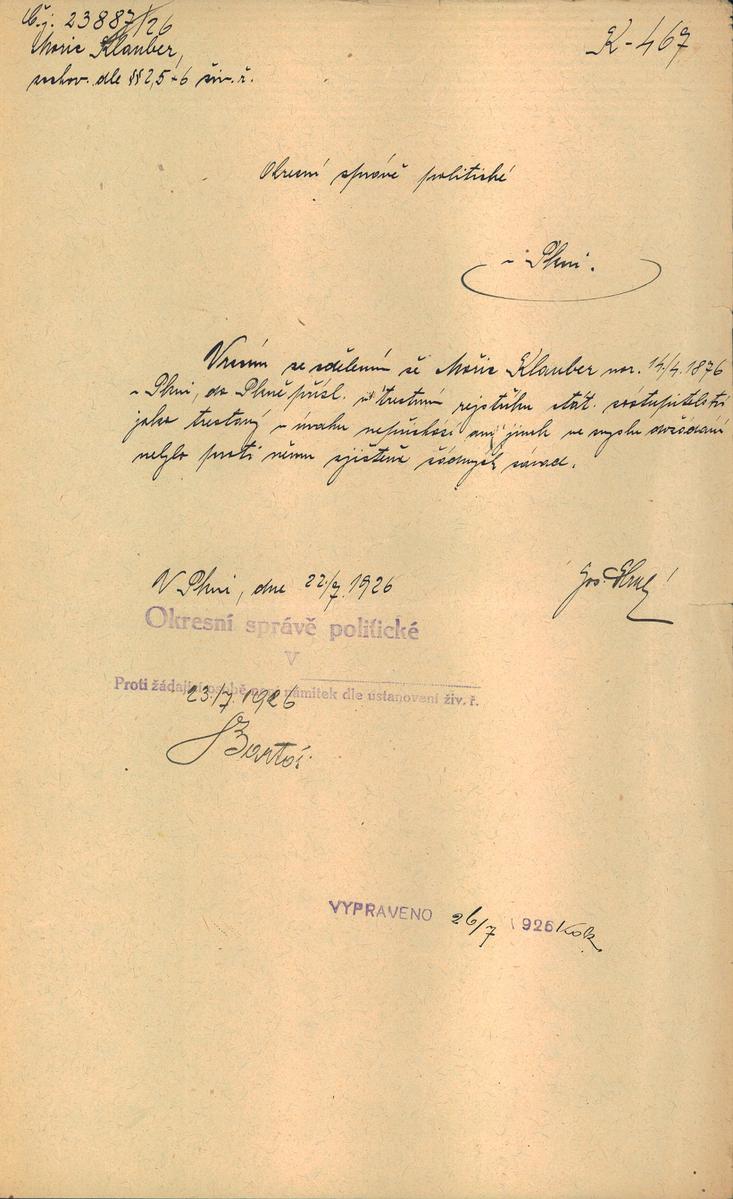 Č.j. 23887/26
K-467
Mořic Klauber,
zachov. dle §§ 2,5+6 živ. ř.
Okresní správě politické
v Plzni.
Vracím se sdělením že Mořic Klauber nar. 14/4.1876
v Plzni, do Plzně přísl. v trestním rejstříku stát. zastupitelství
jako trestaný v úvahu nepřichází ani jinak ve smyslu dožádání
nebylo proti němu zjištěno žádných závad.
V Plzni, dne 22/7.1926
Jos.
Okresní správě politické
V
Proti žádající osobě není námitek dle ustanovení živ. ř.
23./7. 1926
Bartoš
VYPRAVENO 26/7 1926